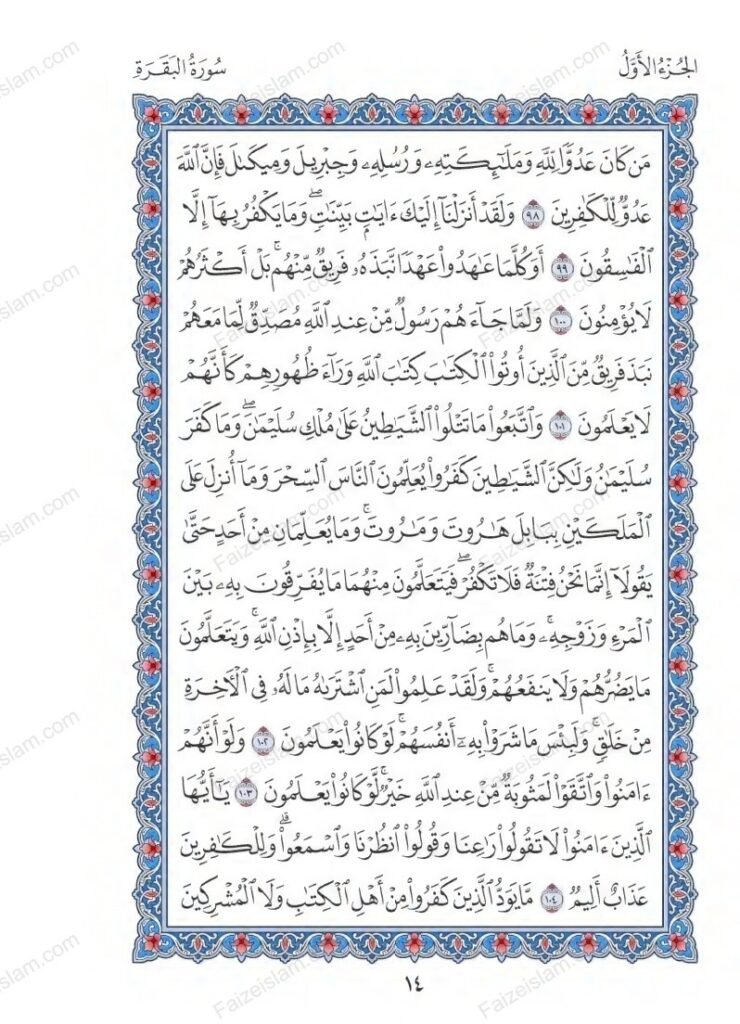 الجُزْءُ الأَوَّلُ
سُورَةُ البَقَرَةِ
مَن كَانَ عَدُوًّا لِّلَّهِ وَمَلَٰٓئِكَتِهِۦ وَرُسُلِهِۦ وَجِبْرِيلَ وَمِيكَىٰلَ فَإِنَّ ٱللَّهَ
عَدُوٌّ لِّلْكَٰفِرِينَ ٩٨ وَلَقَدْ أَنزَلْنَآ إِلَيْكَ ءَايَٰتٍۭ بَيِّنَٰتٍ ۖ وَمَا يَكْفُرُ بِهَآ إِلَّا
ٱلْفَٰسِقُونَ ٩٩ أَوَكُلَّمَا عَٰهَدُوا۟ عَهْدًا نَّبَذَهُۥ فَرِيقٌ مِّنْهُم ۚ بَلْ أَكْثَرُهُمْ
لَا يُؤْمِنُونَ ١٠٠ وَلَمَّا جَآءَهُمْ رَسُولٌ مِّنْ عِندِ ٱللَّهِ مُصَدِّقٌ لِّمَا مَعَهُمْ
نَبَذَ فَرِيقٌ مِّنَ ٱلَّذِينَ أُوتُوا۟ ٱلْكِتَٰبَ كِتَٰبَ ٱللَّهِ وَرَآءَ ظُهُورِهِمْ كَأَنَّهُمْ
لَا يَعْلَمُونَ ١٠١ وَٱتَّبَعُوا۟ مَا تَتْلُوا۟ ٱلشَّيَٰطِينُ عَلَىٰ مُلْكِ سُلَيْمَٰنَ ۖ وَمَا كَفَرَ
سُلَيْمَٰنُ وَلَٰكِنَّ ٱلشَّيَٰطِينَ كَفَرُوا۟ يُعَلِّمُونَ ٱلنَّاسَ ٱلسِّحْرَ وَمَآ أُنزِلَ عَلَى
ٱلْمَلَكَيْنِ بِبَابِلَ هَٰرُوتَ وَمَٰرُوتَ ۚ وَمَا يُعَلِّمَانِ مِنْ أَحَدٍ حَتَّىٰ
يَقُولَآ إِنَّمَا نَحْنُ فِتْنَةٌ فَلَا تَكْفُرْ ۖ فَيَتَعَلَّمُونَ مِنْهُمَا مَا يُفَرِّقُونَ بِهِۦ بَيْنَ
ٱلْمَرْءِ وَزَوْجِهِۦ ۚ وَمَا هُم بِضَآرِّينَ بِهِۦ مِنْ أَحَدٍ إِلَّا بِإِذْنِ ٱللَّهِ ۚ وَيَتَعَلَّمُونَ
مَا يَضُرُّهُمْ وَلَا يَنفَعُهُمْ ۚ وَلَقَدْ عَلِمُوا۟ لَمَنِ ٱشْتَرَىٰهُ مَا لَهُۥ فِى ٱلْءَاخِرَةِ
مِنْ خَلَٰقٍ ۚ وَلَبِئْسَ مَا شَرَوْا۟ بِهِۦٓ أَنفُسَهُمْ ۚ لَوْ كَانُوا۟ يَعْلَمُونَ ١٠٢ وَلَوْ أَنَّهُمْ
ءَامَنُوا۟ وَٱتَّقَوْا۟ لَمَثُوبَةٌ مِّنْ عِندِ ٱللَّهِ خَيْرٌ ۖ لَّوْ كَانُوا۟ يَعْلَمُونَ ١٠٣ يَٰٓأَيُّهَا
ٱلَّذِينَ ءَامَنُوا۟ لَا تَقُولُوا۟ رَٰعِنَا وَقُولُوا۟ ٱنظُرْنَا وَٱسْمَعُوا۟ ۗ وَلِلْكَٰفِرِينَ
عَذَابٌ أَلِيمٌ ١٠٤ مَّا يَوَدُّ ٱلَّذِينَ كَفَرُوا۟ مِنْ أَهْلِ ٱلْكِتَٰبِ وَلَا ٱلْمُشْرِكِينَ
١٤
Faizeislam.com